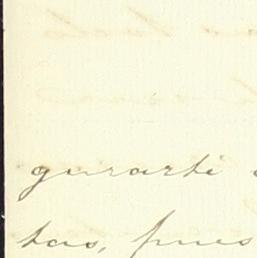 gurarte
tas, pues